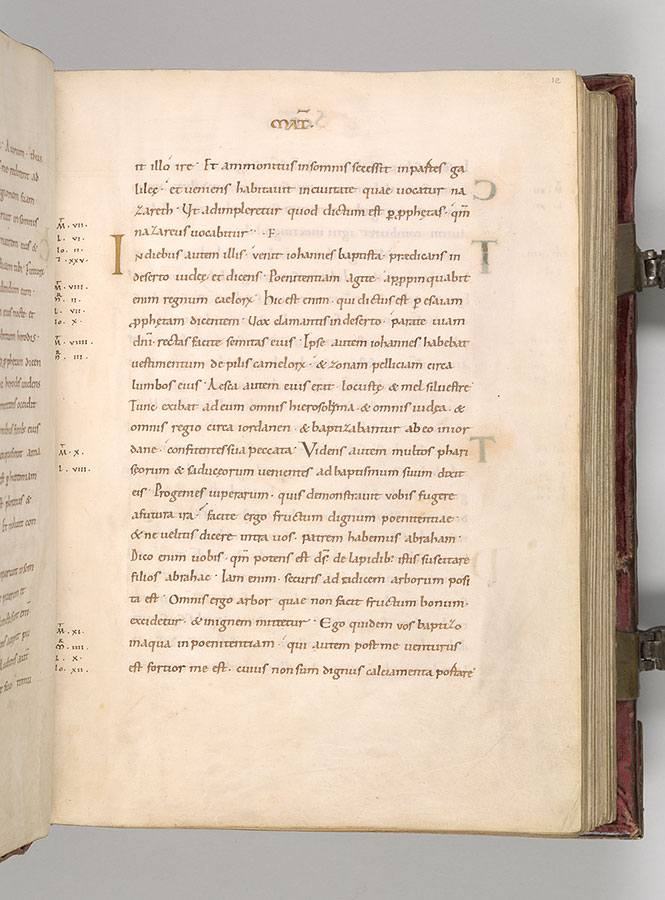 12
MAT̄·
it illo ire · Et ammonitus insomnis secessit inpartes ga
lileę · et veniens habitavit incivitate quae vocatur na
zareth · Ut adimpleretur quod dictum est p̱ p̱phetas · qm̄
nazareus vocabitur · F ·
M · VII ·
L · VI ·
Io · II ·
I Ndiebus autem illis · venit iohannes baptista prędicans in
deserto iudeę et dicens · Poenitentiam agite · app̱pinquabit
M · VIII ·
enim regnum caelorꝝ · Hic est enim · qui dictus est p̱ esaiam
L · VII ·
Io · X ·
p̱phetam dicentem · Vox clamantis indeserto · parate viam
M · VIIII ·
dn̄i · rectas facite semitas eius · Ipse autem iohannes habebat
vestimentum de pilis camelorꝝ · & zonam pelliciam circa
lumbos eius · Aesca autem eius erat · locustę & mel silvestre
Tunc exibat adeum omnis hierosolima · & omnis iudea · &
omnis regio circa iordanen · & baptizabantur ab eo inior
M · X ·
dane · confitentes sua peccata · Videns autem multos phari
L · VIII ·
sęorum & saduceorum venientes adbaptismum suum · dixit
eis · Progenies viperarum · quis demonstravit vobis fugere
afutura ira · facite ergo fructum dignum poenitentiae ·
& ne velitis dicere intra vos · patrem habemus abraham ·
Dico enim vobis · qm̄ potens est ds̄ · de lapidib; istis suscitare
filios abrahae · Iam enim · securis ad radicem arborum posi
ta est · Omnis ergo arbor quae non facit fructum bonum ·
M · XI ·
excidetur · & inignem mittetur · Ego quidem vos baptizo
inaqua inpoenitentiam · qui autem post me venturus
L · X ·
est fortior me est · cuius non sum dignus calciamenta portare